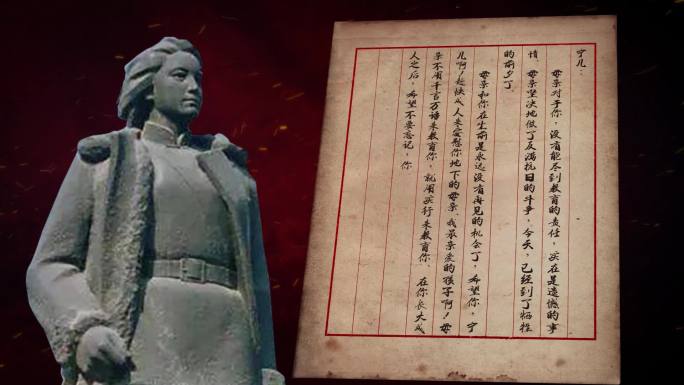 宁儿：
母亲对于你，没有能尽到教育的责任，实在是遗憾的事
情。母亲坚决地做了反满抗日的斗争，今天，已经到了牺牲
的前夕了。
母亲和你在生前是永远没有再见的机会了，希望你，宁
儿啊！赶快成人来安慰你地下的母亲。我最亲爱的孩子啊！母
亲不用千言万语来教育你，就用实行来教育你。在你长大成
人之后，希望不要忘记，你